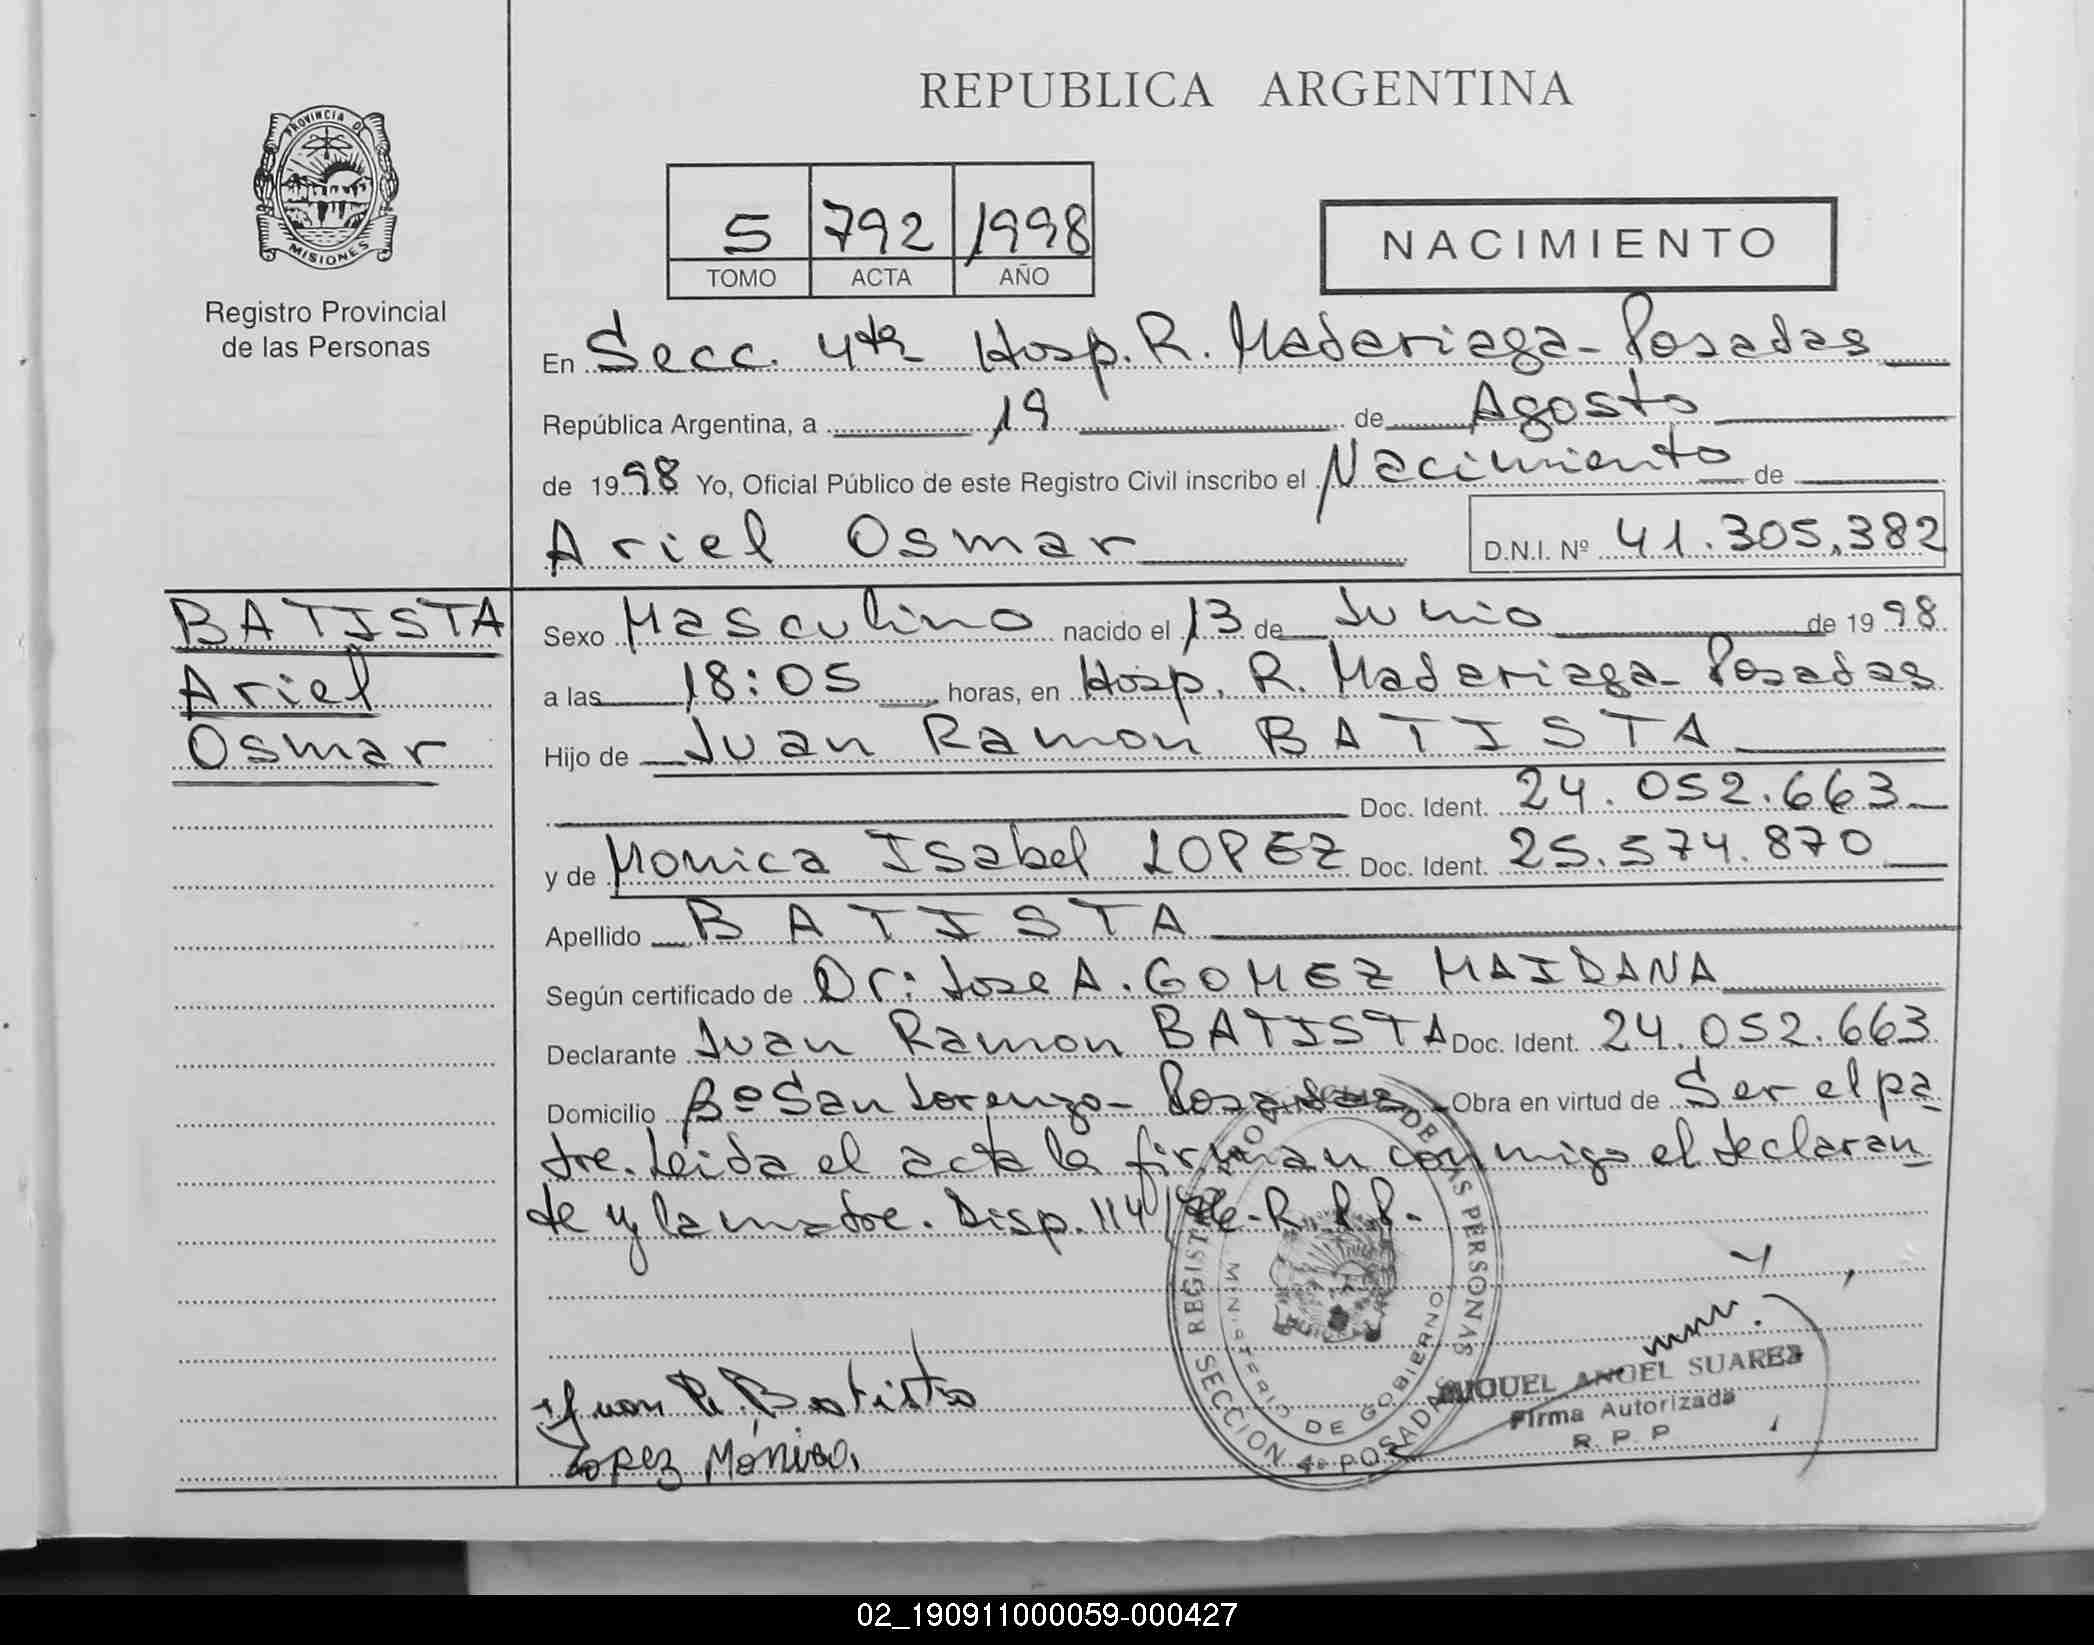 REPUBLICA ARGENTINA
PROVINCIA DE
MISIONES
Registro Provincial
de las Personas
5 792 1998
TOMO ACTA AÑO
NACIMIENTO
En Secc. 4ta Hosp. R. Madariaga - Posadas
República Argentina, a 19 de Agosto
de 1998 Yo, Oficial Público de este Registro Civil inscribo el Nacimiento de
Ariel Osmar D.N.I. Nº 41.305.382
BATISTA
Ariel
Osmar
Sexo Masculino nacido el 13 de Junio de 1998
a las 18:05 horas, en Hosp. R. Madariaga - Posadas
Hijo de Juan Ramon BATISTA
Doc. Ident. 24.052.663
y de Monica Isabel LOPEZ Doc. Ident. 25.574.870
Apellido BATISTA
Según certificado de Dr: Jose A. GOMEZ MAIDANA
Declarante Juan Ramon BATISTA Doc. Ident. 24.052.663
Domicilio Bº San Lorenzo - Posadas - Obra en virtud de Ser el pa
dre. Leida el acta la firman conmigo el declaran
te y la madre. Disp. 114/96 - R.P.P.
Juan R. Batista
Lopez Mónica
REGISTRO PROV. DE LAS PERSONAS
MINISTERIO DE GOBIERNO
SECCION 4º POSADAS
MIGUEL ANGEL SUAREZ
Firma Autorizada
R. P. P
02_190911000059-000427